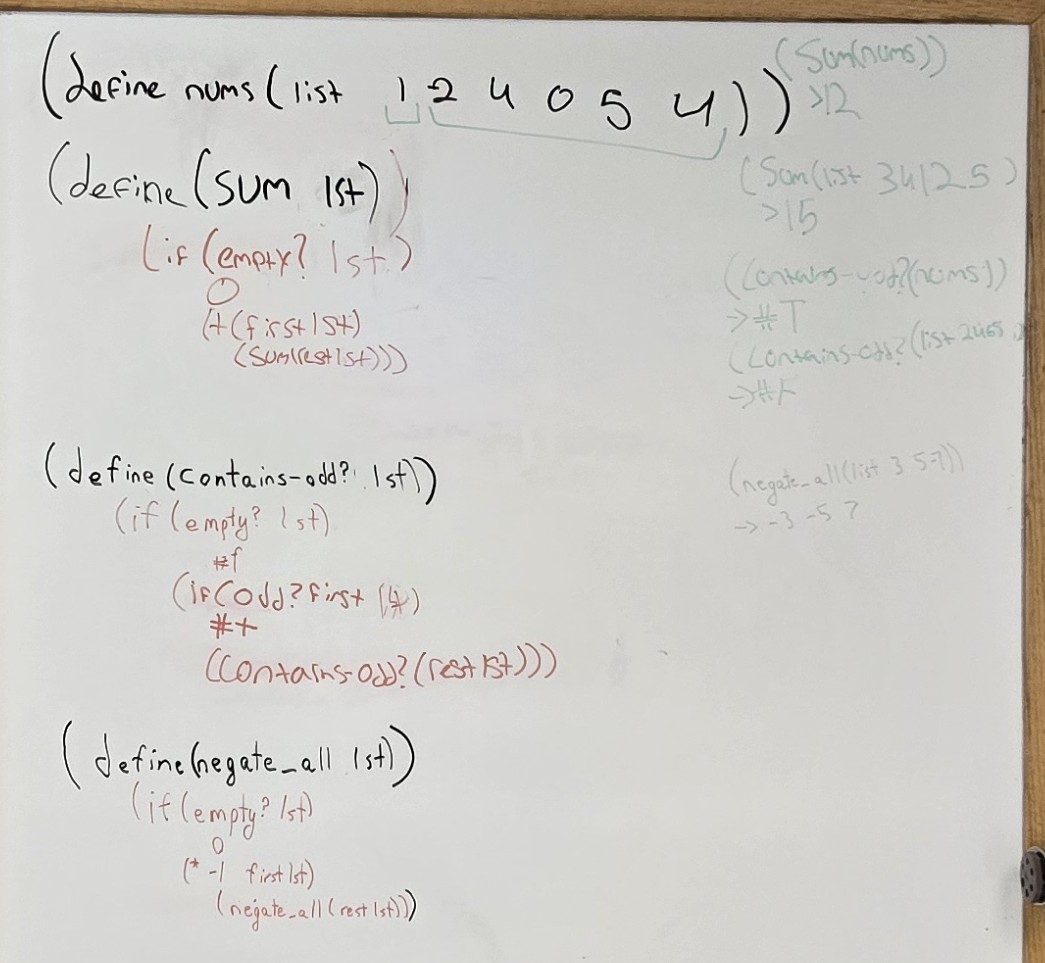 (define nums (list 1 2 4 0 5 4))
(define (sum lst))
(if (empty? lst)
0
(+ (first lst)
(sum(rest lst)))
(define (contains-odd? lst))
(if (empty? lst)
#f
(if (odd? first
#t
(contains-odd? (rest lst)))
(define (negate_all lst))
(if (empty? lst)
0
(* -1 first lst)
(negate_all (rest lst)))
(Sum(nums))
>12
(Sum(list 3 4 1 2 5)
>15
(Contains-odd?(nums))
->#T
(Contains-odd? (list 2 4 6
->#F
(negate_all (list 3 5 -7))
-> -3 -5 7